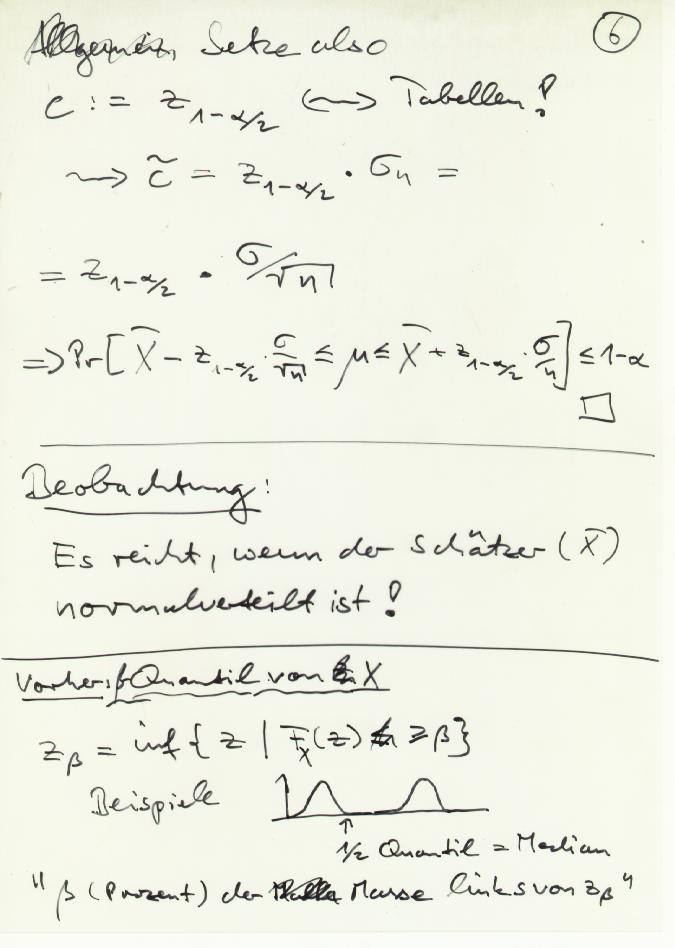 Setze also
6
c := z_{1-α/2} (⟿ Tabellen!
⟿ c̃ = z_{1-α/2} · σ_n =
= z_{1-α/2} · σ/√n
=> Pr[X̄ - z_{1-α/2} · σ/√n ≤ μ ≤ X̄ + z_{1-α/2} · σ/n] ≤ 1-α
□
Beobachtung:
Es reicht, wenn der Schätzer (X̄)
normalverteilt ist!
Vorher: β Quantil von X
z_β = inf{ z | F_X(z) ≥ β}
Beispiele
↑
1/2 Quantil = Median
"β (Prozent) der Masse links von z_β"